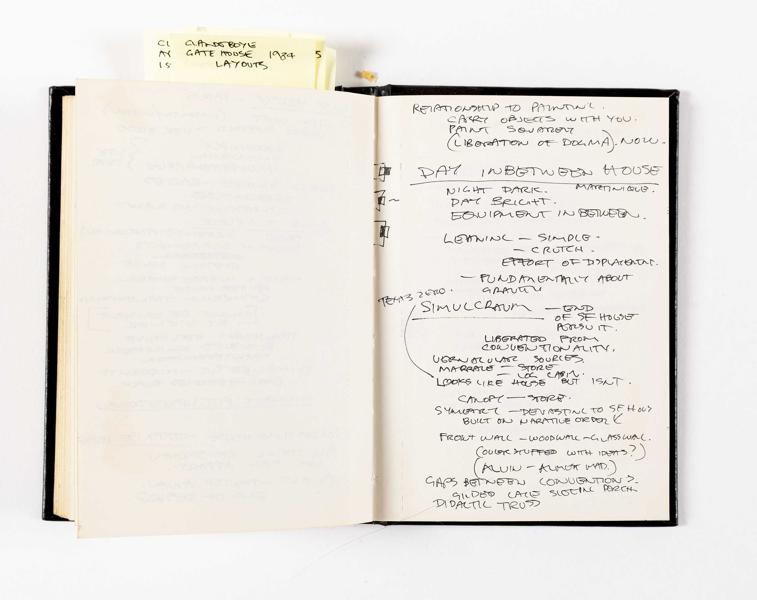 CLANDEBOYE
GATE HOUSE 1984
LAYOUTS
RELATIONSHIP TO PAINTING.
CARRY OBJECTS WITH YOU.
PAINT SQUARELY
(LIBERATION OF DOGMA). NOW.
DAY INBETWEEN HOUSE
NIGHT DARK. MARTINIQUE.
DAY BRIGHT.
EQUIPMENT IN BETWEEN.
LEANING — SIMPLE.
— CRUTCH.
EFFORT OF DISPLACEMENT.
— FUNDAMENTALLY ABOUT
GRAVITY
ZERO.
SIMULCRAUM — END
OF SF HOUSE
PURSUIT.
LIBERATED FROM
CONVENTIONALITY.
VERNACULAR SOURCES.
— STORE
— LOG CABIN.
LOOKS LIKE HOUSE BUT ISNT.
CANOPY — STORE.
SYMMETRY — DEVASTING TO SF HOUSE
BUILT ON NARATIVE ORDER
FRONT WALL — WOODWALL — GLASSWALL.
(OVER STUFFED WITH IDEAS?)
GAPS BETWEEN CONVENTIONS.
GILDED CAGE SLEEPING PORCH.
DIDACTIC TRUSS